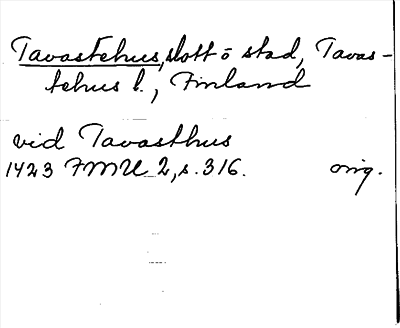 Tavastehus, slott o stad, Tavas-
tehus l., Finland
vid Tavasthus
1423 FMU 2, s. 316. orig.